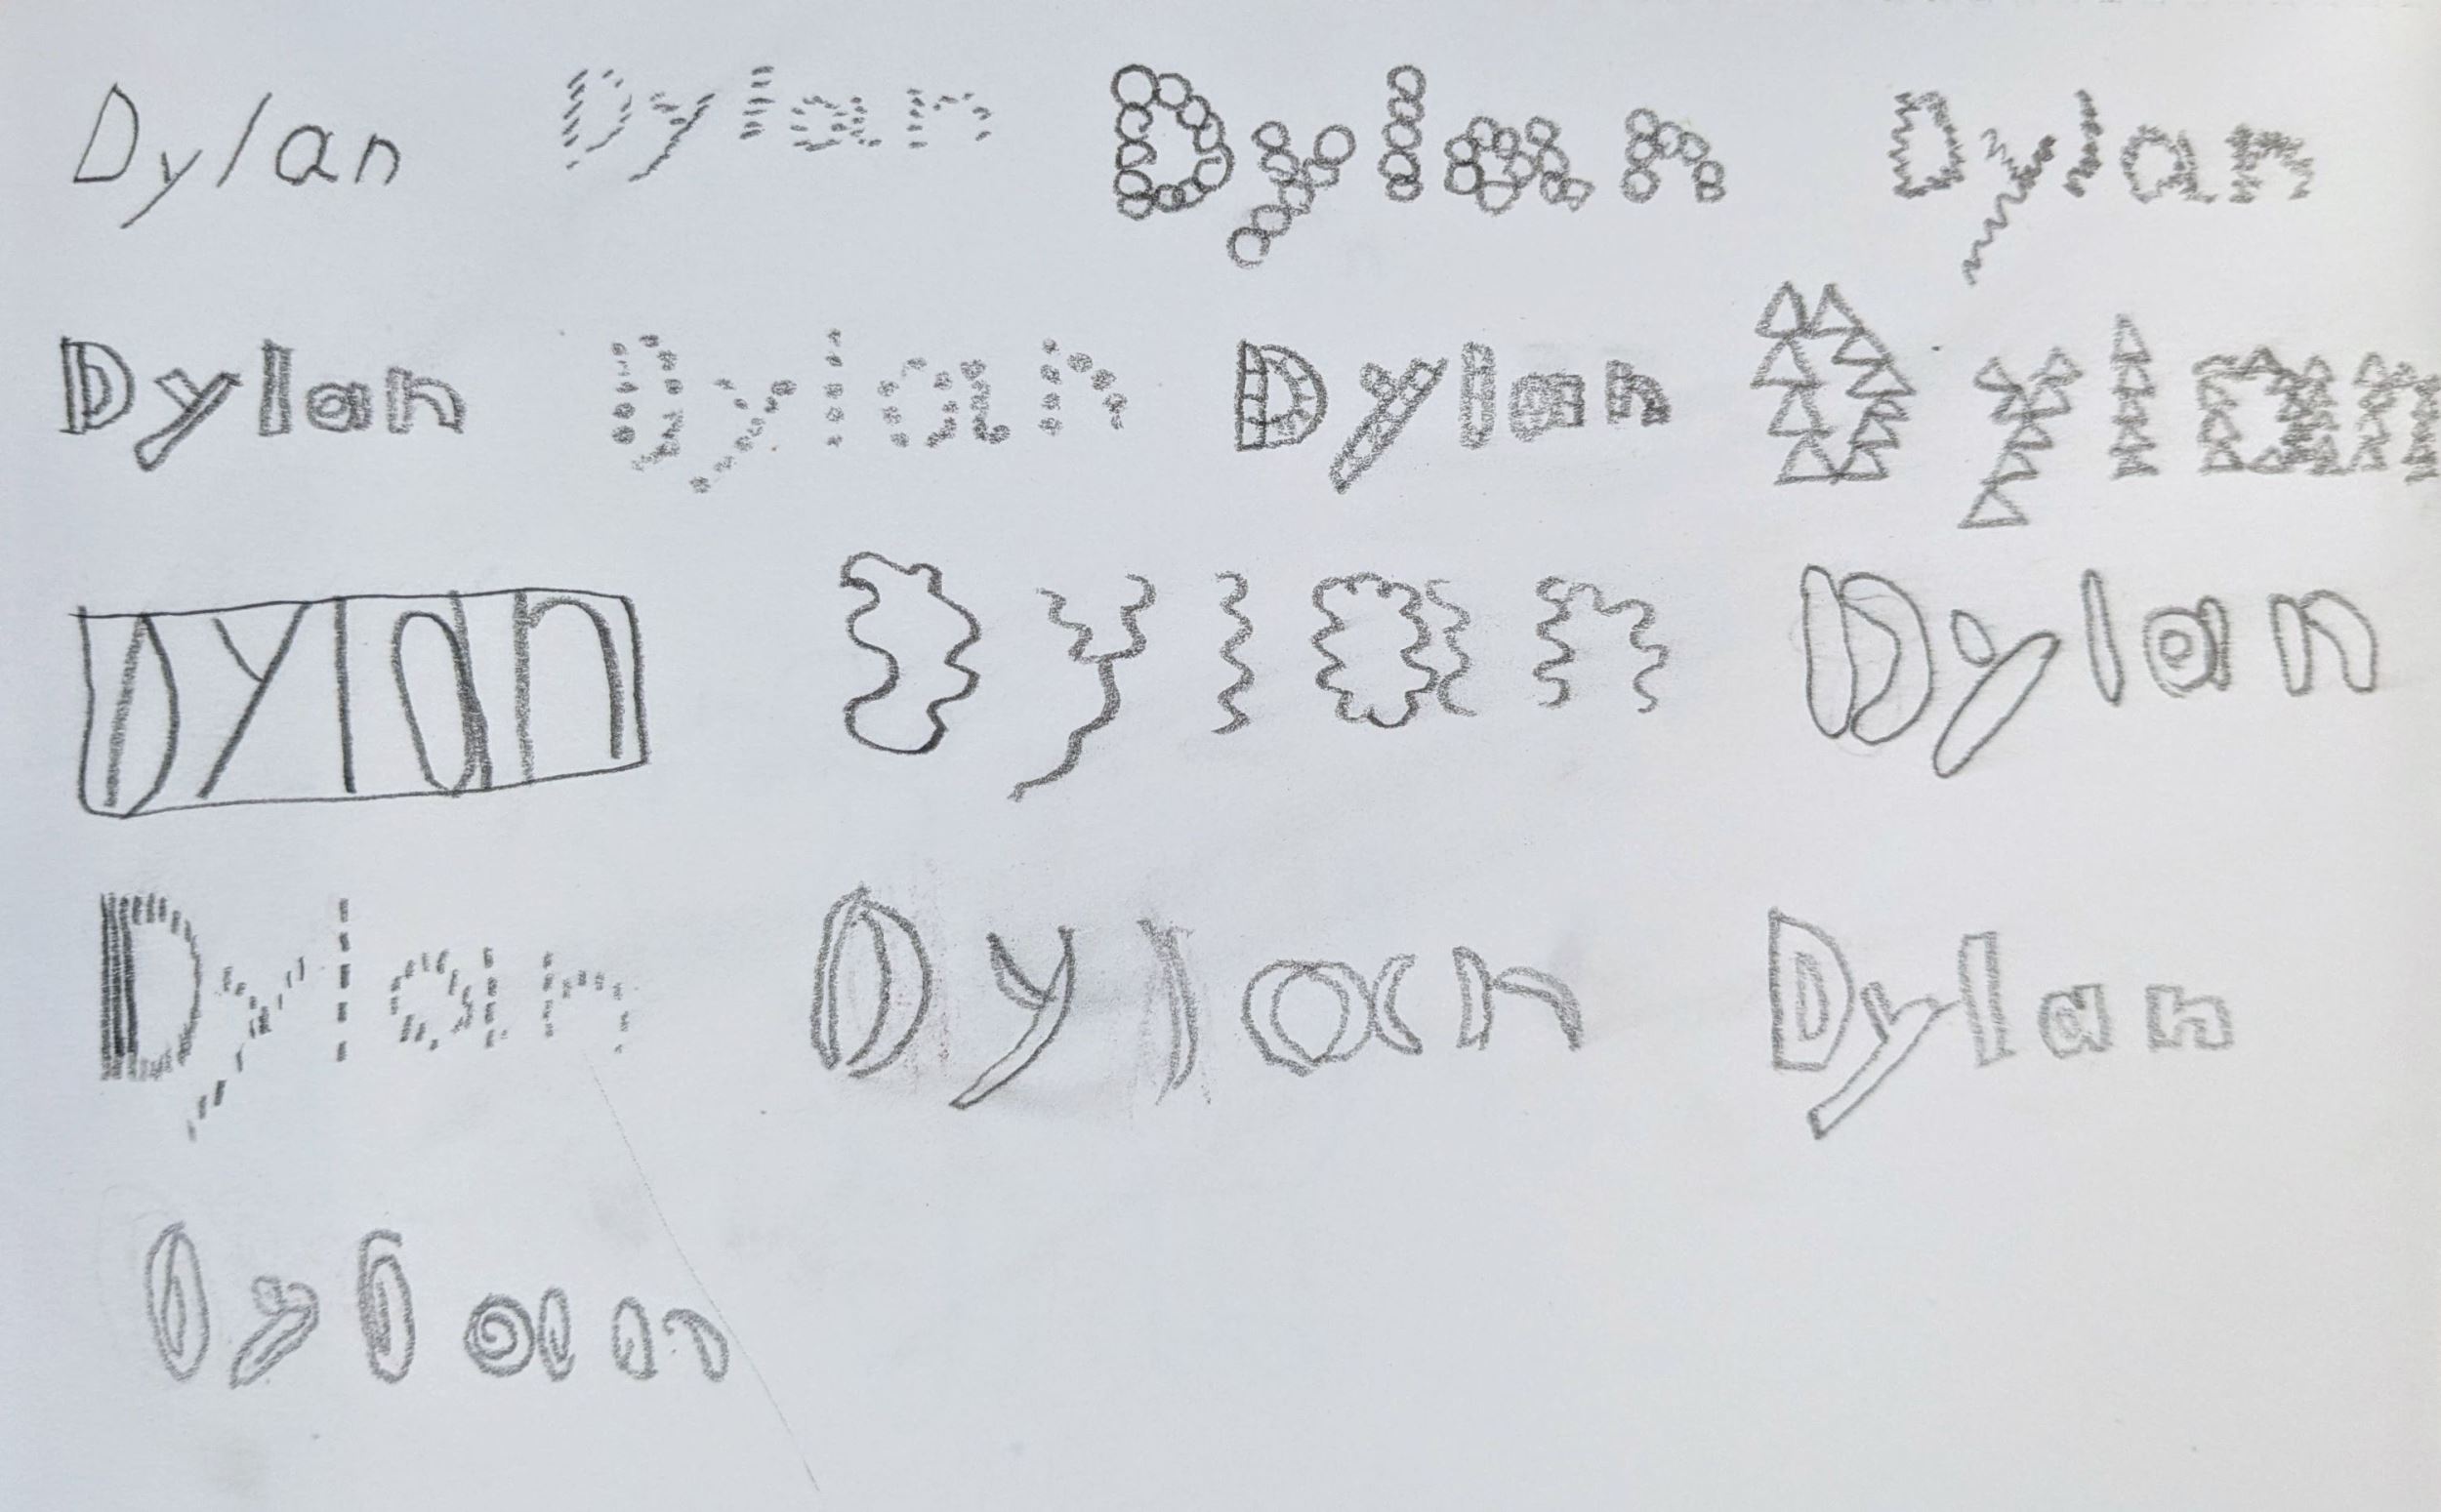 Dylan Dylan Dylan Dylan
Dylan Dylan Dylan Dylan
Dylan Dylan Dylan
Dylan Dylan Dylan
Dylan